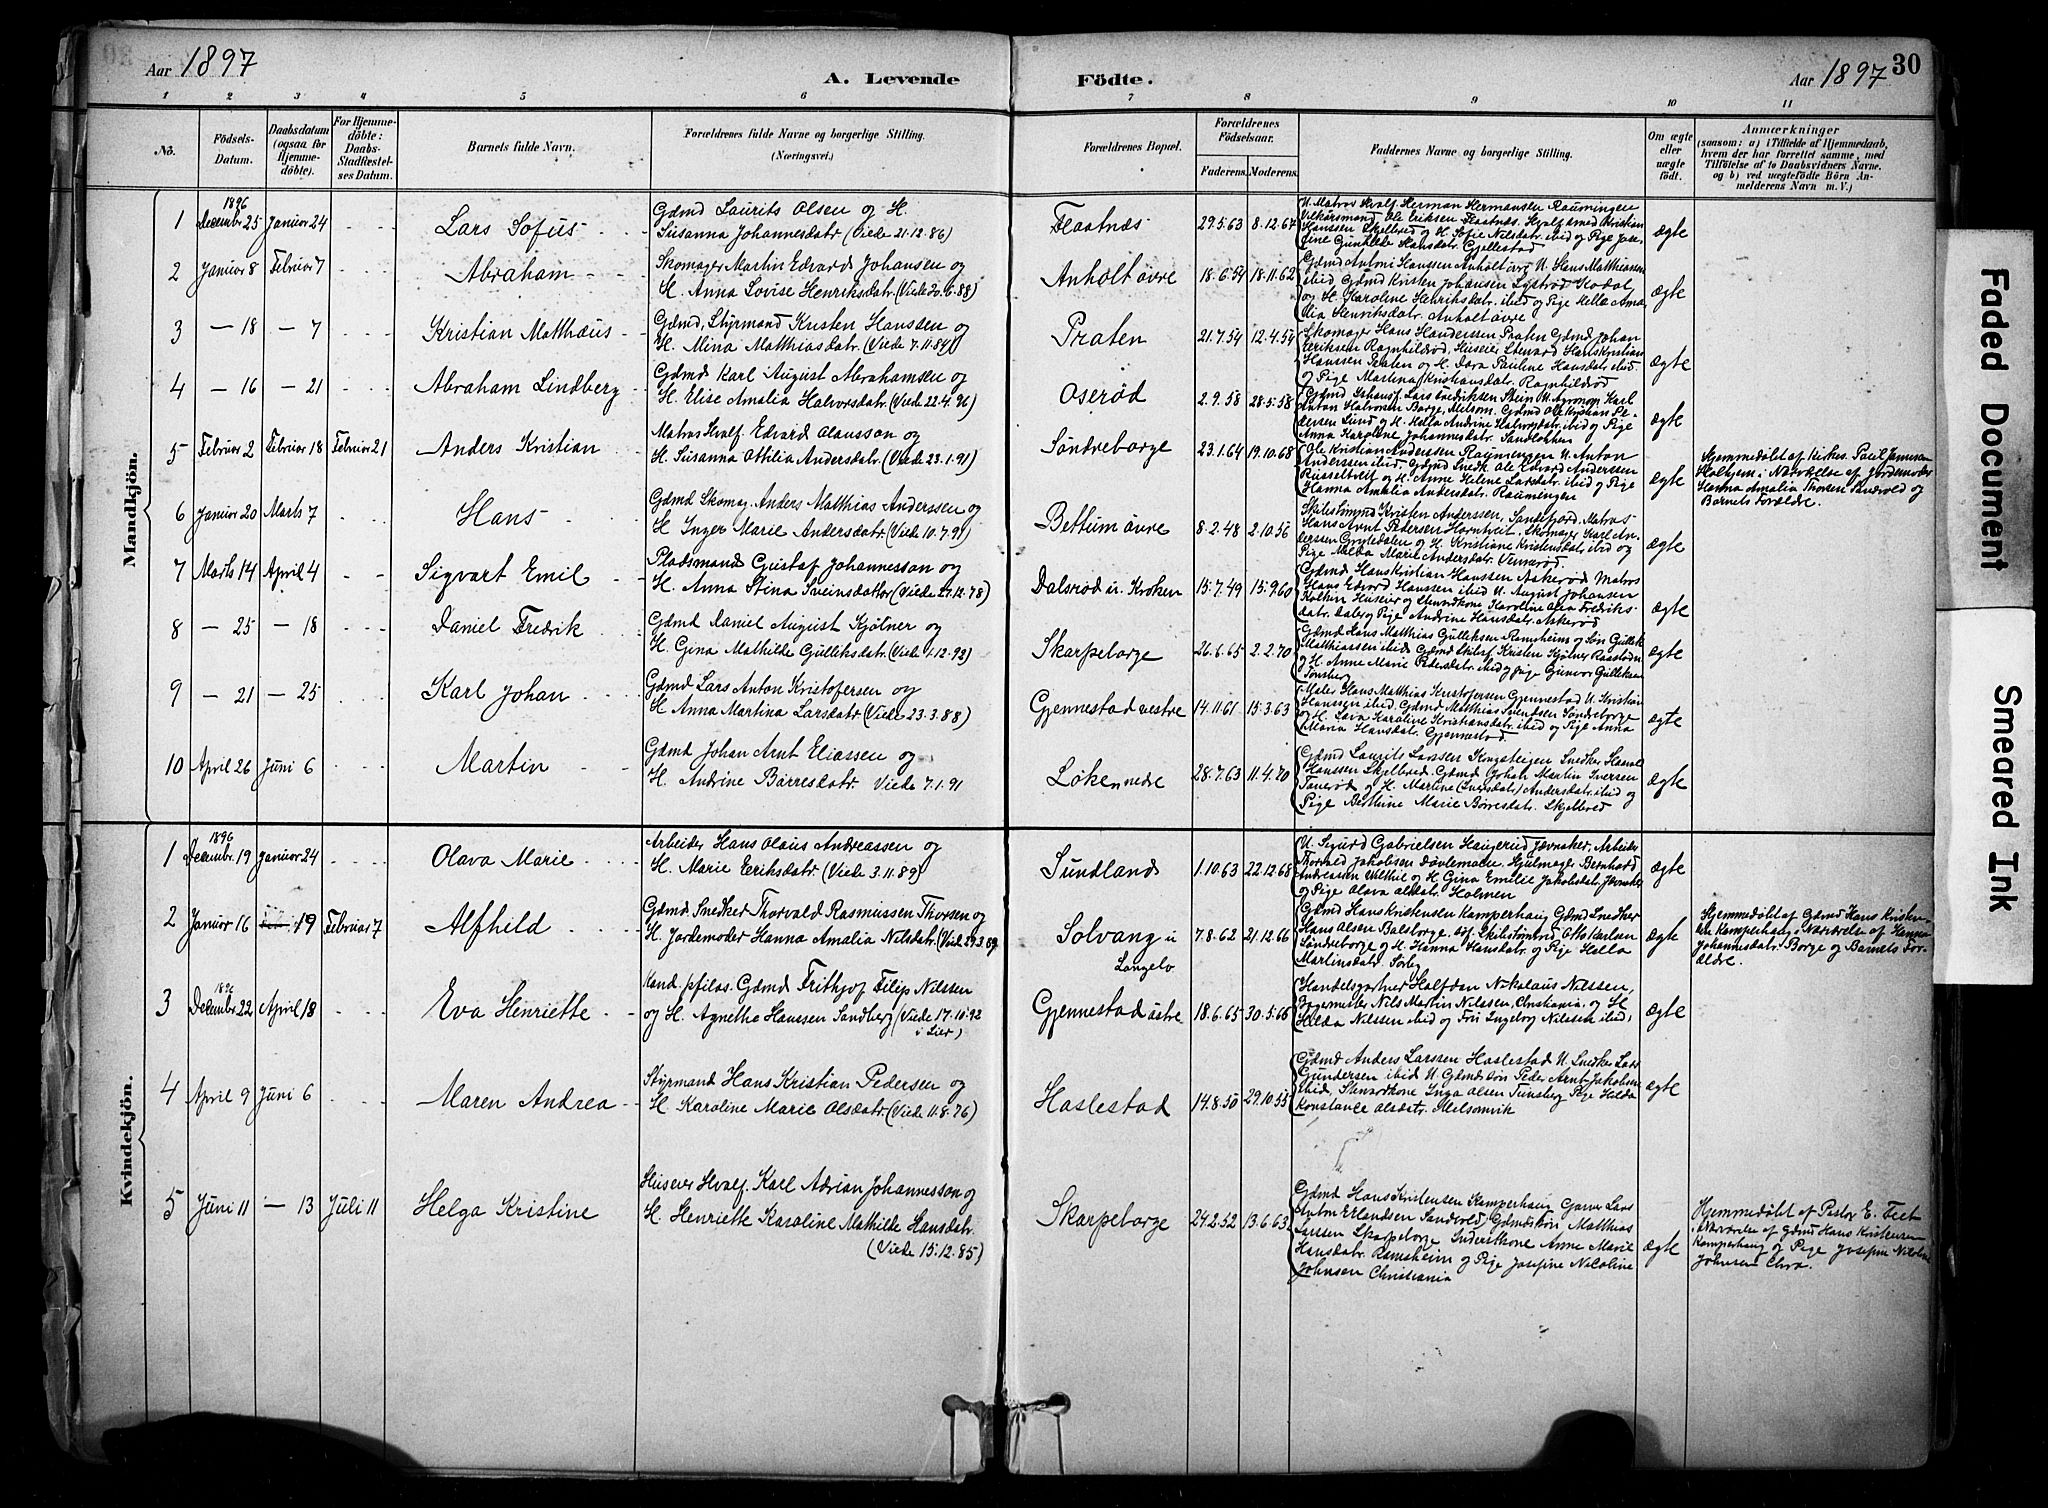 30
Aar 1897
A. Levende Födte.
Aar 1897
1 2 3 4 5 6 7 8 9 10 11
No.
Födsels-Datum.
Daabsdatum (ogsaa for Hjemmedöbte).
For Hjemmedöbte: Daabs-Stadfæstelses Datum.
Barnets fulde Navn.
Forældrenes fulde Navne og borgerlige Stilling.
(Næringsvei.)
Forældrenes Bopæl.
Forældrenes Födselsaar.
Faderens. Moderens.
Faddernes Navne og borgerlige Stilling.
Om ægte eller uægte født.
Anmærkninger
(saasom: a) i Tilfælde af Hjemmedaab, hvem der har forrettet samme, med Tilföielse af to Daabsvidners Navne, og b) ved uægtefödte Börn Anmelderens Navn m. V.)
Mandkjön.
1896
1 Decembr 25 Januar 24 Lars Sofus
Gdmd Laurits Olsen og H.
Susanna Johannesdatr (Viede 21.12.86)
Flaatnæs 29.5.63 8.12.67 ægte
2 Januar 8 Februar 7 Abraham
Skomager Martin Edvard Johansen og
H. Anna Lovise Henriksdatr. (Viede 20.6.88)
Anholt øvre 18.6.54 18.11.62
Gdmd Antoni Hanssen Anholt øvre U. Hans Matthiassen
og H. Karoline Henriksdatr. ibid og Pige Helle Ama-
lia Henriksdatr. Anholt øvre
ægte
3 — 18 — 7 Kristian Matthæus
Gdmd, Styrmand Kristen Hanssen og
H. Mina Matthiasdatr. (Viede 7.11.84)
Praten 21.7.54 12.4.54
Hanssen Praten og H. Dora Pauline Hansdatr. ibid
og Pige Martina Kristiansdatr. Ragnhildrød
ægte
4 — 16 — 21 Abraham Lindberg
Gdmd Karl August Abrahamsen og
H. Elise Amalia Halvorsdatr. (Viede 22.4.96)
Oserød 2.9.58 28.5.58
Anton Halvorsen Borge, Melsom. Gdmd Ole Kristian Pe-
dersen Lund og H. Helle Andrine Halvorsdatr. ibid og Pige
Anna Karoline Johannesdatr. Sandlokken
ægte
5 Februar 2 Februar 18 Februar 21 Anders Kristian
Matros Hvalf. Edvard Olausson og
H. Susanna Othilia Andersdatr. (Viede 23.1.91)
Søndreborge 23.1.64 19.10.68
Ole Kristian Anderssen Raumingen U. Anton
Anderssen ibid, Gdmd Snedk. Ole Edvard Anderssen
og H. Anne Helene Larsdatr. ibid og Pige
Hanna Amalia Andersdatr. Raumingen
ægte
Hjemmedøbt af Kirkes. Paul Jansen
Holtjem i Nærværelse af Jordemoder
Hanna Amalia Thorsen Sandvold og
Barnets Forældre.
6 Januar 20 Marts 7 Hans
Gdmd Skomag. Anders Matthias Anderssen og
H Inger Marie Andersdatr (Viede 10.7.91)
Bettum øvre 8.2.48 2.10.56
Kristen Anderssen, Sandefjord, Matros
Hans Arnt Pedersen Horntvet. Skomager Karl An-
derssen og H. Kristiane Kristensdatr. ibid og
Pige Marie Andersdatr.
ægte
7 Marts 14 April 4 Sigvart Emil
Pladsmand Gustaf Johannesson og
H. Anna Stina Sveinsdatter (Viede 27.12.78)
Dalsrød u. Kroken 15.7.49 15.9.60
Gdmd Hans Kristian Hanssen Askerød Matros
Hans Edvard Hanssen ibid U. August Johansen
datr. Dal og Pige Andrine Hansdatr. Askerød
ægte
8 — 25 — 18 Daniel Fredrik
Gdmd Daniel August Kjølner og
H. Gina Mathilde Gulliksdatr. (Viede 1.12.92)
Skarpeborge 26.6.65 2.2.70
Gdmd Hans Matthias Gulliksen Ramsheim og Søn Gullik
Matthiassen ibid
og H. Anne Marie Pedersdatr. ibid og pige Gunvor Gulliksen
Tønsberg
ægte
9 — 21 — 25 Karl Johan
Gdmd Lars Anton Kristofersen og
H Anna Martina Larsdatr (Viede 23.3.88)
Gjennestad vestre 14.11.61 15.3.63
Maler Hans Matthias Kristofersen Gjennestad U. Kristian
Hanssen ibid. Gdmd Matthias Svendsen Søndreborge
og H. Lava Karoline Kristiansdatr. ibid og Pige Anna
Maria Hansdatr. Gjennestad.
ægte
10 April 26 Juni 6 Martin
Gdmd Johan Arnt Eliassen og
H. Andrine Børresdatr. Viede 7.1.91
Løke nedre 28.7.63 11.4.70
Gdmd Laurits Larssen Kongsteigen Snedker
Hanssen Skjelbred. Gdmd Johan Martin Iversen
og H. Martine (Iversdatr.) Andersdatr. ibid og
Pige Bethine Marie Børresdatr. Skjelbred
ægte
Kvindekjön.
1896
1 Decembr. 19 Januar 24 Olava Marie
Arbeider Hans Olaus Andreassen og
H. Marie Eriksdatr. (Viede 3.11.89)
Sundland 1.10.63 22.12.68
U. Sigurd Gabrielsen Haugerud Jævnaker, Arbeider
Thorvald Jakobsen Døvlemoen. Hjulmager Bernhard
Andreassen og H. Gina Emilie Jakobsdatr. Jævnaker
og Pige Olava Olsdatr. Holmen
ægte
2 Januar 16 19 Februar 7 Alfhild
Gdmd. Snedker Thorvald Rasmussen Thorsen og
H. Jordemoder Hanna Amalia Nilsdatr. (Viede 29.3.89
Solvang u Langelv 7.8.62 21.12.66
Gdmd Hans Kristensen Kamperhaug Gdmd Snedker
Hans Olsen
Søndreborge og H. Hanna Hansdatr. og Pige Helle
Martinsdatr. Sørby
ægte
Hjemmedøbt af Gdmd Hans Kristen-
sen Kamperhaug i Nærværelse af
Johannesdatr. Borge og Barnets For-
ældre.
1896
3 Decembr 22 April 18 Eva Henriette
Kand. pfilos. Gdmd Frithjof Filip Nilssen
og H. Agnethe Hanssen Sandberg (Viede 17.10.92
i Lier)
Gjennestad østre 18.6.65 30.5.66
Handelsgartner Halfdan Nikolaus Nilssen,
Bagermester Nils Martin Nilssen, Christiania, og H.
Hilda Nilssen ibid og Frk Ingeborg Nilssen ibid.
ægte
4 April 9 Juni 6 Maren Andrea
Styrmand Hans Kristian Pedersen og
H Karoline Marie Olsdatr (Viede 11.8.76)
Haslestad 14.8.50 29.10.55
Gdmd Anders Larssen Haslestad U. Snedker Lars
Gundersen ibid U. Gdmdssøn Peder Arnt Jakobsen
ibid, Inga Olsen Tunsberg Pige Hilda
Konstance Olsdatr. Melsomvik
ægte
5 Juni 11 — 13 Juli 11 Helga Kristine
Huseier Hvalf. Karl Adrian Johannesson og
H. Henriette Karoline Mathilde Hansdatr.
(Viede 15.12.85)
Skarpeborge 24.2.52 13.6.63
Gdmd Hans Kristensen Kamperhaug Garver Lars
Anton Erlandsen Sandvold, Gdmdssøn Matthias
Larssen Skarpeborge Anne Marie
Hansdatr. Ramsheim og Pige Josefine Nicoline
Johnsen Christiania
ægte
Hjemmedøbt af Pastor E. Feet
i Nærværelse af Gdmd Hans Kristensen
Kamperhaug og Pige Josefine Nicoline
Johnsen Chra.
Faded Document
Smeared Ink